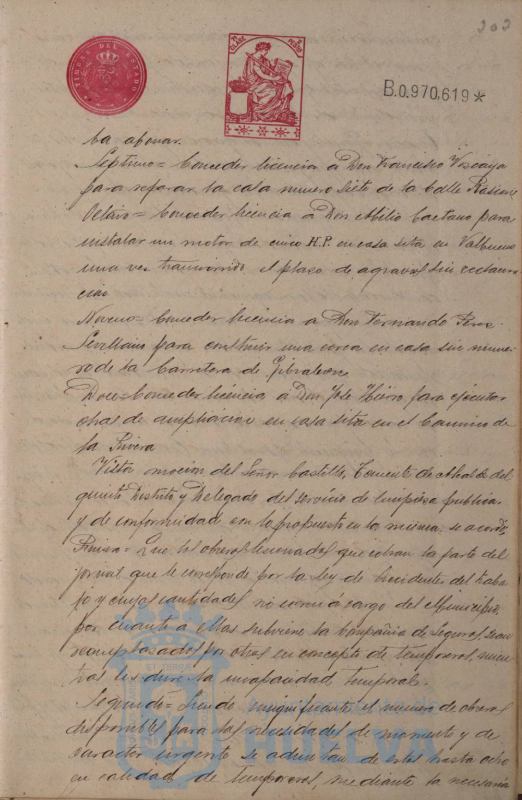 202
TIMBRE DEL ESTADO
B.0.970,619*
ba abonar.
Septimo = Conceder licencia á Don Francisco Vizcaya
para reparar la casa número siete de la Calle Rascon
Octavo = Conceder licencia á Don Abilio Caetano para
instalar un motor de cinco H.P. en casa sita en Valbuena
una vez transcurrido el plazo de agravios sin reclama-
cion
Noveno = Conceder licencia á Don Fernando Perez
Sevillano para construir una cerca en casa sin nume-
ro de la Carretera de Gibraleon
Doce = Conceder licencia á Don José Hierro para ejecutar
obras de ampliacion en casa sita en el Camino de
la Rivera
Vista mocion del Señor Castilla, Teniente de Alcalde del
quinto Distrito y Delegado del servicio de limpieza publica
y de conformidad con lo propuesto en la misma se acordó,
Primero = Que los obreros lesionados que cobran la parte del
jornal que le corresponde por la Ley de Accidentes del traba-
jo y cuyas cantidades no corren á cargo del Municipio,
por cuanto a ellas subviene la Compañia de Seguros, sean
reemplazados por otros en concepto de temporeros, mien-
tras les dure la incapacidad temporal.
Segundo = Siendo insignificante el número de obreros
disponibles para las necesidades de momento y de
caracter urgente se admitan de estos hasta ocho
en calidad de temporeros, mediante la necesaria
HUELVA